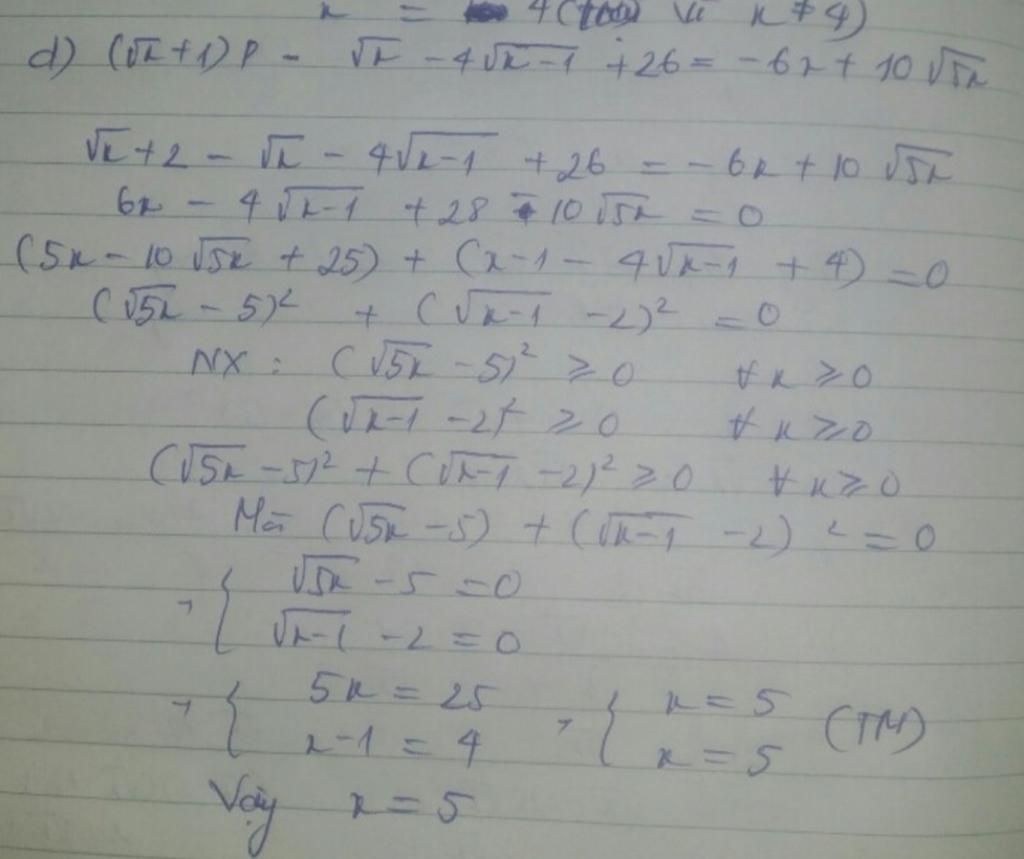 x = 4 ( vì x ≠ 4)
d) (√x + 1) P - √x - 4√x-1 + 26 = -6x + 10√5x
√x + 2 - √x - 4√x-1 + 26 = -6x + 10√5x
6x - 4√x-1 + 28 - 10√5x = 0
(5x - 10√5x + 25) + (x-1 - 4√x-1 + 4) = 0
(√5x - 5)² + (√x-1 - 2)² = 0
NX : (√5x - 5)² ≥ 0 ∀ x ≥ 0
(√x-1 - 2)² ≥ 0 ∀ x ≥ 0
(√5x - 5)² + (√x-1 - 2)² ≥ 0 ∀ x ≥ 0
Mà (√5x - 5) + (√x-1 - 2)² = 0
→ { √5x - 5 = 0
√x-1 - 2 = 0
→ { 5x = 25 → { x = 5 (TM)
x-1 = 4 x = 5
Vậy x = 5